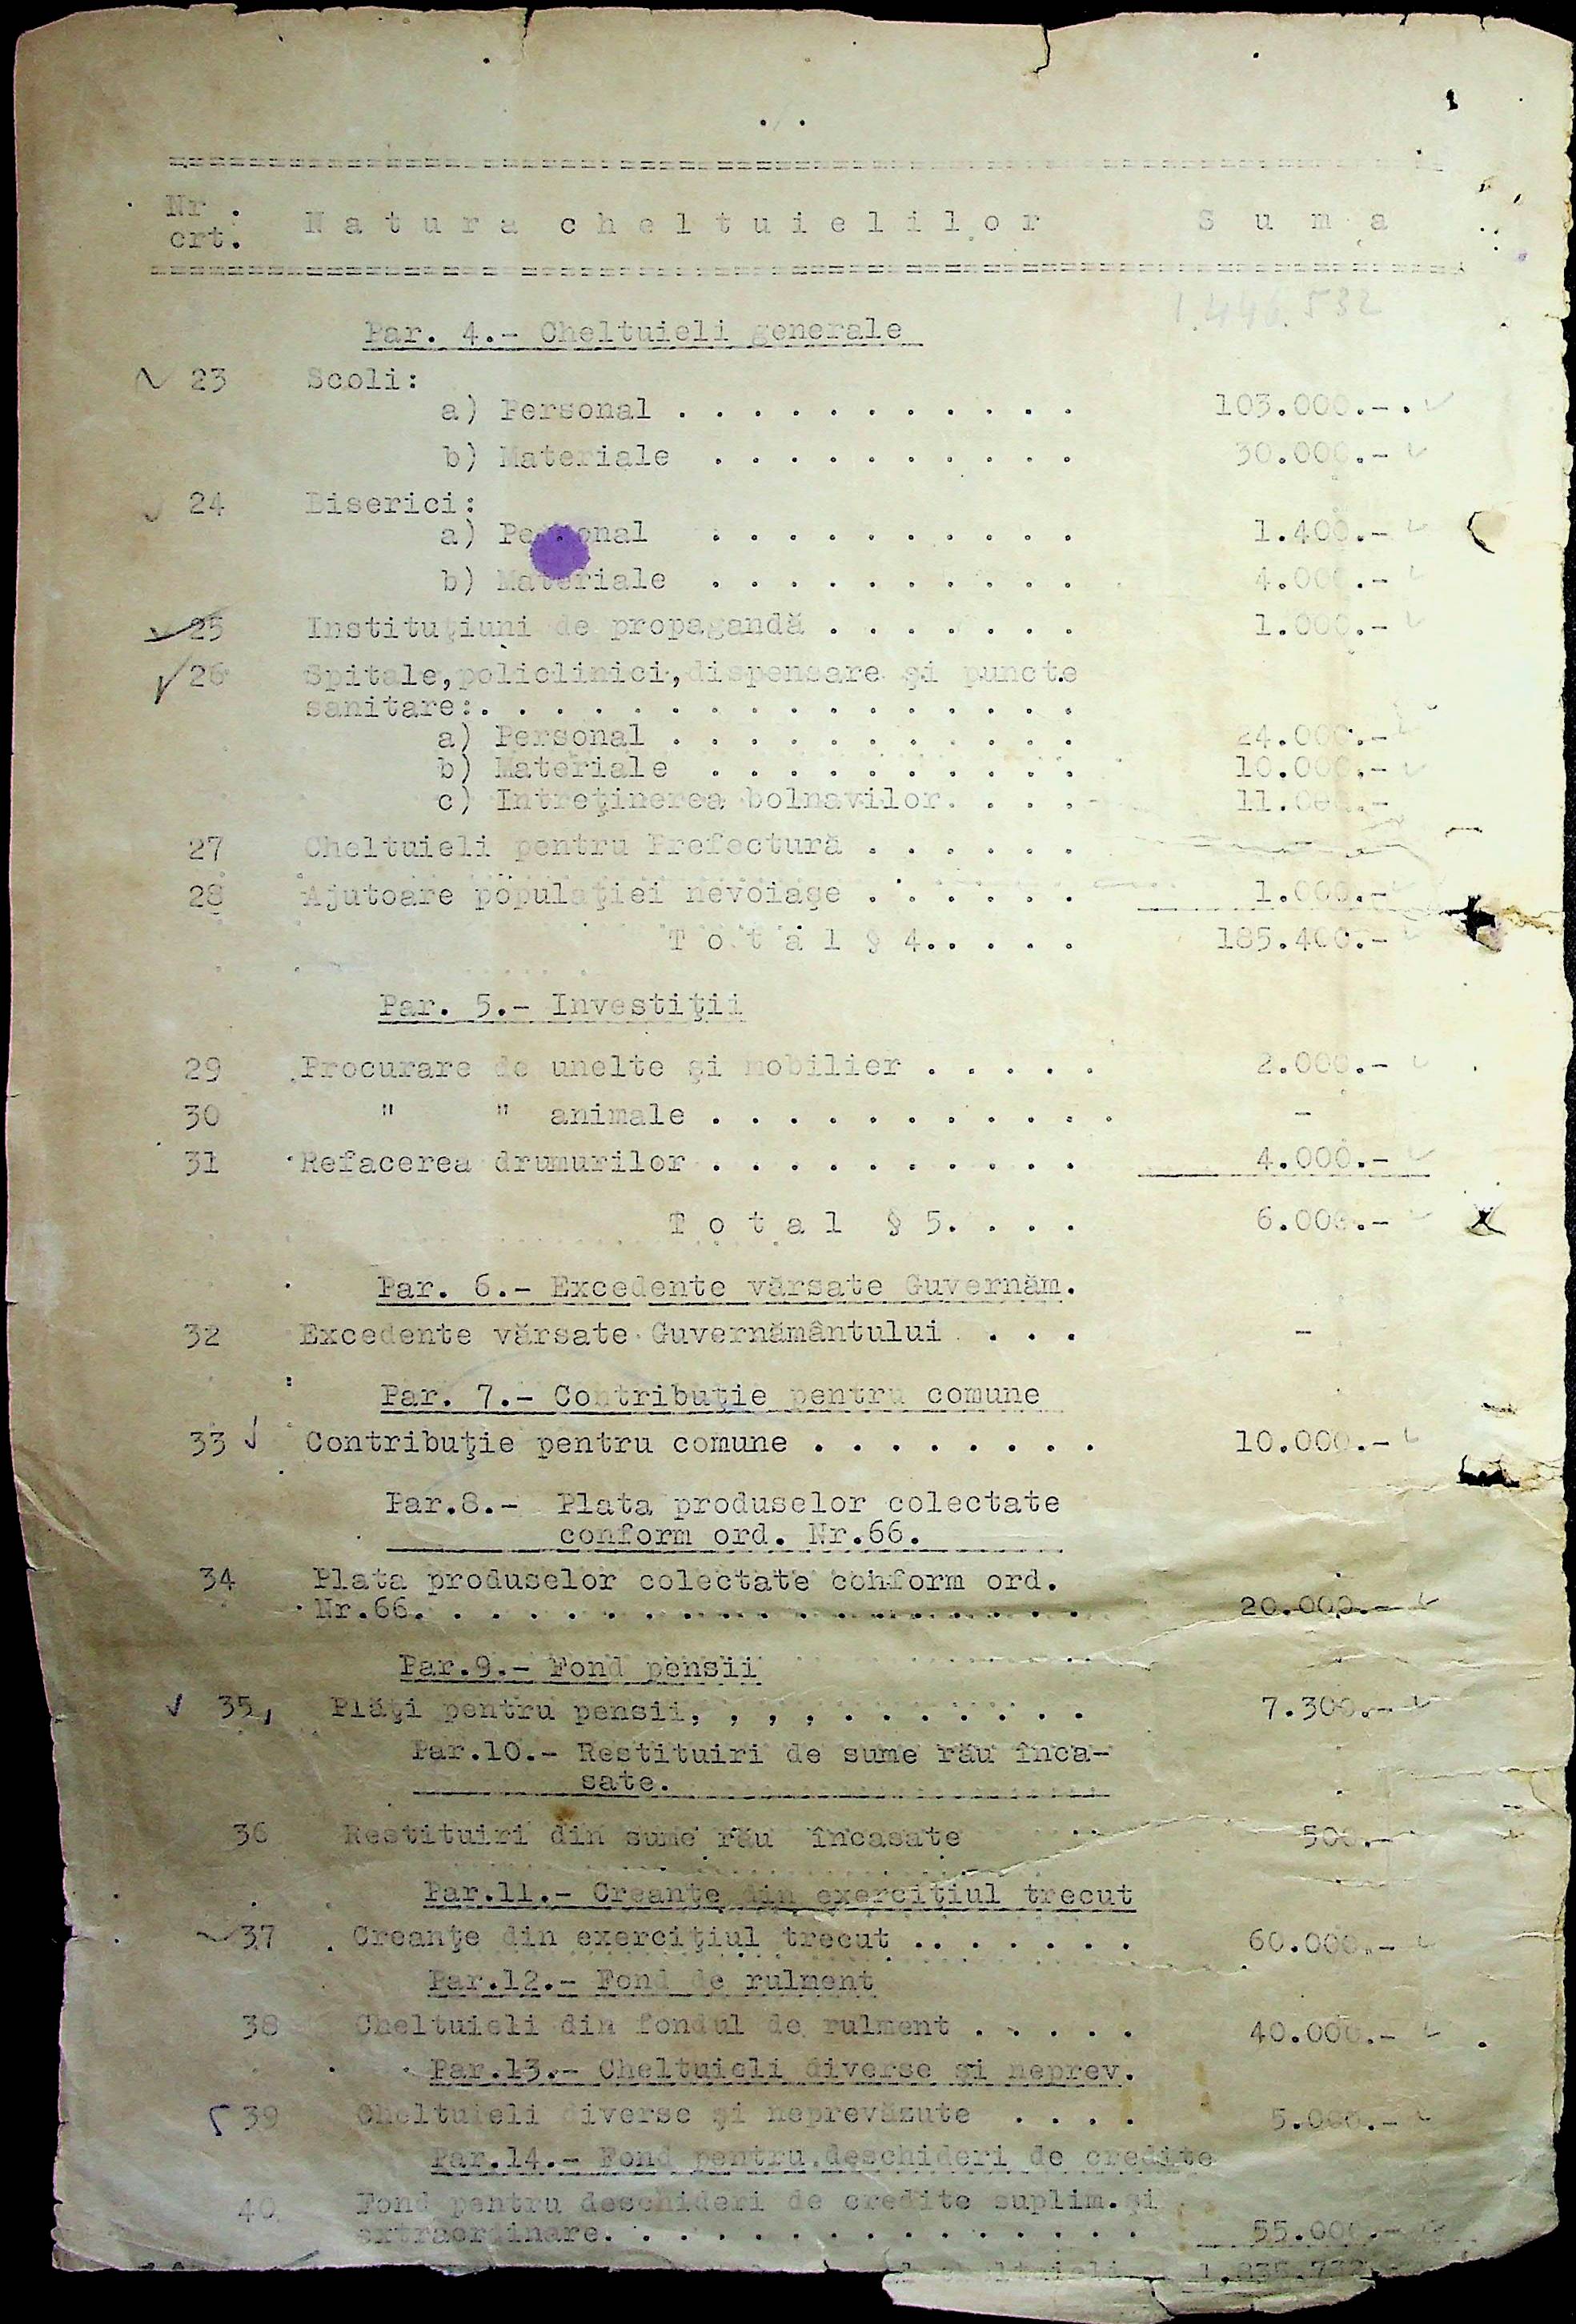 ./.
Nr. crt. Natura cheltuielilor Suma
1.446.532
Par. 4.- Cheltuieli generale
23 Scoli:
a) Personal . . . . . . . . . . . 103.000.-
b) Materiale . . . . . . . . . . 30.000.-
24 Biserici:
a) Personal . . . . . . . . . . 1.400.-
b) Materiale . . . . . . . . . . 4.000.-
25 Instituţiuni de propagandă . . . . . . . 1.000.-
26 Spitale,policlinici,dispensare şi puncte
sanitare:. . . . . . . . . . . . . . . .
a) Personal . . . . . . . . . . . 24.000.-
b) Materiale . . . . . . . . . . 10.000.-
c) Intreţinerea bolnavilor. . . . 11.000.-
27 Cheltuieli pentru Prefectură . . . . . .
28 Ajutoare populaţiei nevoiaşe . . . . . . 1.000.-
Total § 4. . . . . 185.400.-
Par. 5.- Investiţii
29 Procurare de unelte şi mobilier . . . . . 2.000.-
30 " " animale . . . . . . . . . . . -
31 Refacerea drumurilor . . . . . . . . . . 4.000.-
Total § 5. . . . 6.000.-
Par. 6.- Excedente vărsate Guvernăm.
32 Excedente vărsate Guvernământului . . . -
Par. 7.- Contribuţie pentru comune
33 Contribuţie pentru comune . . . . . . . . 10.000.-
Par.8.- Plata produselor colectate
conform ord. Nr.66.
34 Plata produselor colectate conform ord.
Nr.66. . . . . . . . . . . . . . . . . . 20.000.-
Par.9.- Fond pensii
35, Plăţi pentru pensii, , , , . . . . . . . 7.300.-
Par.10.- Restituiri de sume rău înca-
sate.
36 Restituiri din sume rău încasate 500.-
Par.11.- Creanţe din exerciţiul trecut
37 Creanţe din exerciţiul trecut . . . . . . . 60.000.-
Par.12.- Fond de rulment
38 Cheltuieli din fondul de rulment . . . . . 40.000.-
Par.13.- Cheltuieli diverse şi neprev.
39 Cheltuieli diverse şi neprevăzute . . . . 5.000.-
Par.14.- Fond pentru deschideri de credite
40 Fond pentru deschideri de credite suplim.şi
extraordinare. . . . . . . . . . . . . . . 55.000.-
cheltuieli 1.835.732